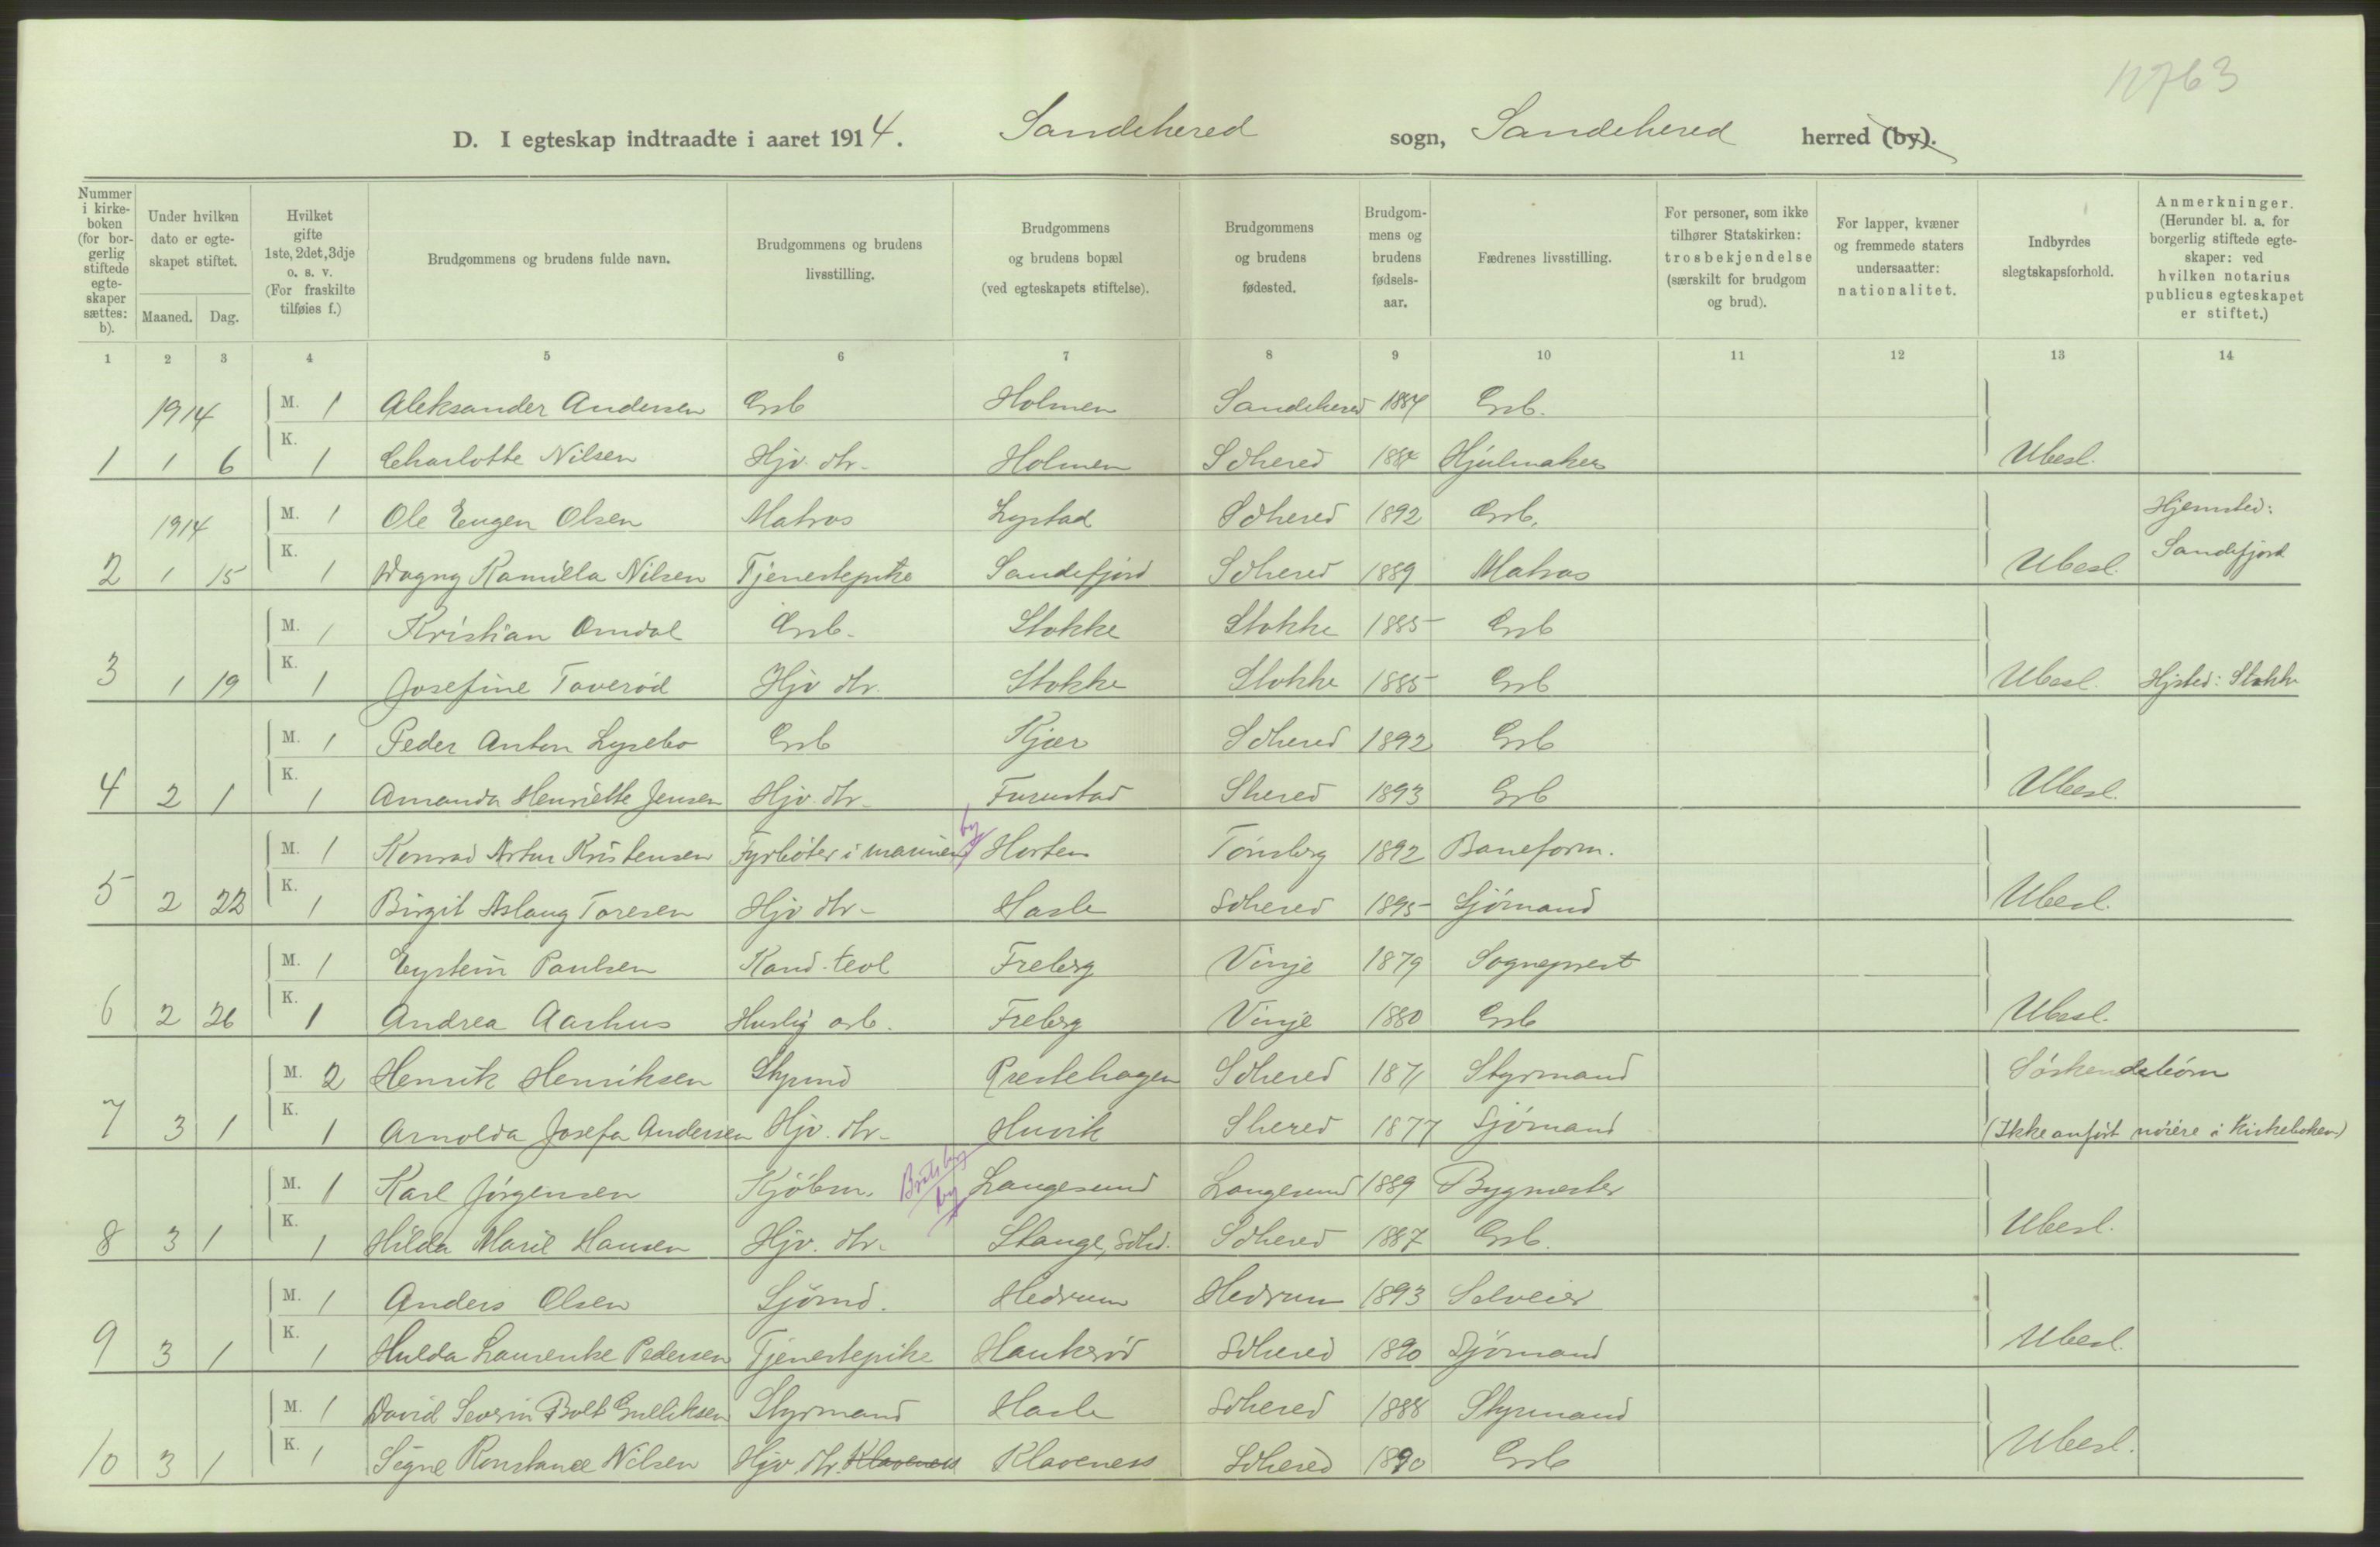 12763
D. I egteskap indtraadte i aaret 1914. Sandehered sogn, Sandehered herred (by).
Nummer i kirke-boken (for bor-gerlig stiftede egte-skaper sættes: b). Under hvilken dato er egte-skapet stiftet. Maaned. Dag. Hvilket gifte 1ste, 2det, 3dje o. s. v. (For fraskilte tilføies f.) Brudgommens og brudens fulde navn. Brudgommens og brudens livsstilling. Brudgommens og brudens bopæl (ved egteskapets stiftelse). Brudgommens og brudens fødested. Brudgom-mens og brudens fødsels-aar. Fædrenes livsstilling. For personer, som ikke tilhører Statskirken: trosbekjendelse (særskilt for brudgom og brud). For lapper, kvæner og fremmede staters undersaatter: nationalitet. Indbyrdes slegtskapsforhold. Anmerkninger. (Herunder bl. a. for borgerlig stiftede egte-skaper: ved hvilken notarius publicus egteskapet er stiftet.)
1 2 3 4 5 6 7 8 9 10 11 12 13 14
1914 M. 1 Aleksander Andersen Grb Holmen Sandehered 1884 Grb.
1 1 6 K. 1 Charlotte Nilsen Hjv. dtr. Holmen Sdhered 1884 Hjulmaker Ubesl.
1914 M. 1 Ole Eugen Olsen Matros Lystad Sdhered 1892 Grb. Hjemsted:
2 1 15 K. 1 Dagny Kamilla Nilsen Tjenestepike Sandefjord Sdhered 1889 Matros Ubesl. Sandefjord
M. 1 Kristian Omdal Grb. Stokke Stokke 1885 Grb
3 1 19 K. 1 Josefine Taverød Hjv dtr. Stokke Stokke 1885 Grb Ubesl. Hjsted: Stokke
M. 1 Peder Anton Lysebo Grb Kjær Sdhered 1892 Grb
4 2 1 K. 1 Amanda Henriette Jensen Hjv. dtr. Furustad Shered 1893 Grb Ubesl.
M. 1 Konrad Artur Kristensen Fyrbøter i marinen by Horten Tønsberg 1892 Baneform.
5 2 22 K. 1 Birgit Aslaug Toresen Hjv dtr. Hasle Sdhered 1895 Sjømand Ubesl.
M. 1 Eystein Paulsen Kand. teol Freberg Vinje 1879 Sogneprest
6 2 26 K. 1 Andrea Aarhus Huslig arb. Freberg Vinje 1880 Grb Ubesl.
M. 2 Henrik Henriksen Styrmd Prestehagen Sdhered 1871 Styrmand Søskendebørn
7 3 1 K. 1 Arnolda Josefa Andersen Hjv. dtr. Huvik Shered 1877 Sjømand (Ikke anført nøiere i Kirkeboken)
M. 1 Karl Jørgensen Kjøbm. Bratsberg by Langesund Langesund 1889 Bygmester
8 3 1 K. 1 Hilda Marie Hansen Hjv. dtr. Stange, Sdhd. Sdhered 1887 Grb. Ubesl.
M. 1 Anders Olsen Sjømd. Hedrum Hedrum 1893 Selveier
9 3 1 K. 1 Hulda Laurenke Pedersen Tjenestepike Haukerød Sdhered 1890 Sjømand Ubesl.
M. 1 David Severin Bolt Gulliksen Styrmand Hasle Sdhered 1888 Styrmand
10 3 1 K. 1 Signe Konstance Nilsen Hjv. dtr. Klavenes Klaveness Sdhered 1890 Grb Ubesl.